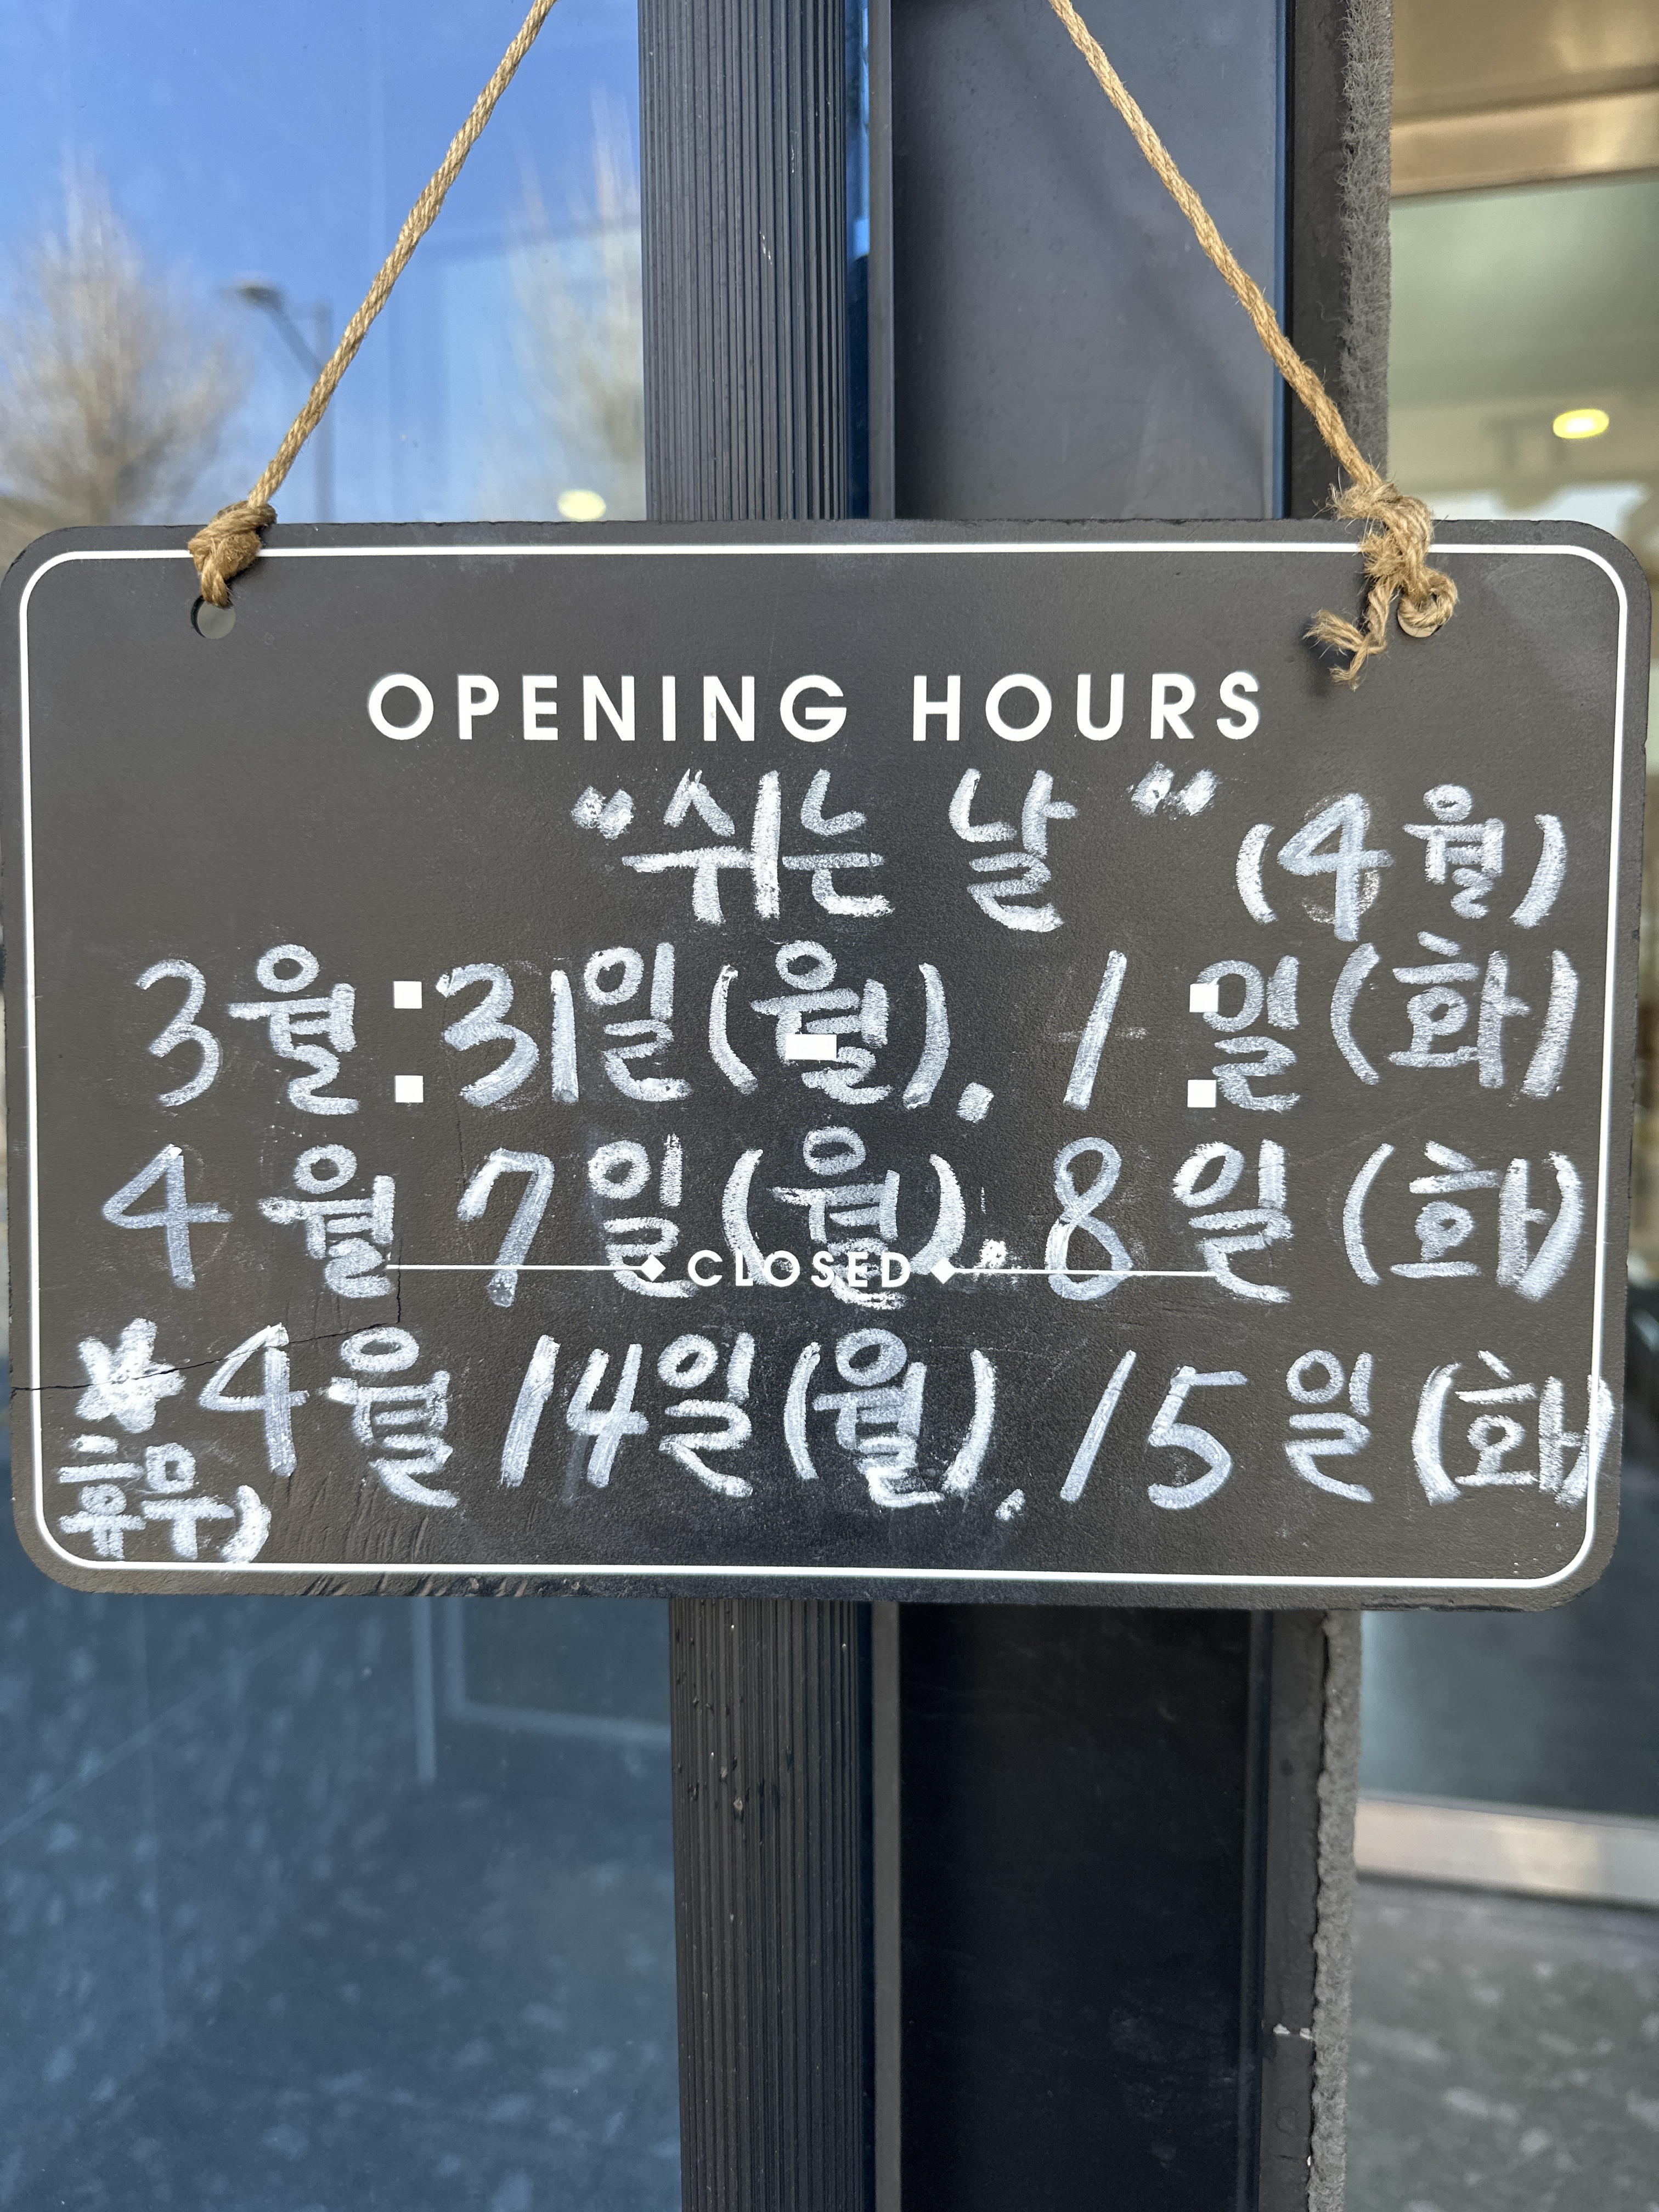 OPENING HOURS
"쉬는 날" (4월)
3월:31일(월), 1:일(화)
4월 7일(월), 8일(화)
CLOSED
*4월 14일(월), 15일(화)
휴무)